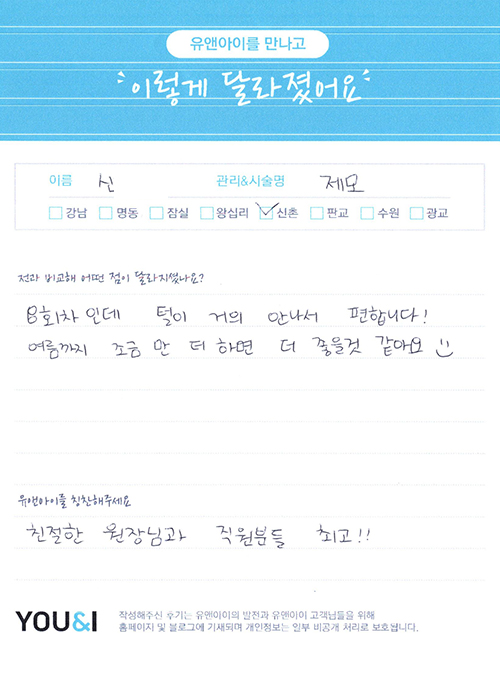 유앤아이를 만나고
이렇게 달라졌어요
이름 신 관리&시술명 제모
강남 명동 잠실 왕십리 신촌 판교 수원 광교
전과 비교해 어떤 점이 달라지셨나요?
8회차인데 털이 거의 안나서 편합니다!
여름까지 조금 만 더 하면 더 좋을것 같아요
유앤아이를 칭찬해주세요
친절한 원장님과 직원분들 최고!!
YOU&I
작성해주신 후기는 유앤아이의 발전과 유앤아이 고객님들을 위해
홈페이지 및 블로그에 기재되며 개인정보는 일부 비공개 처리로 보호됩니다.